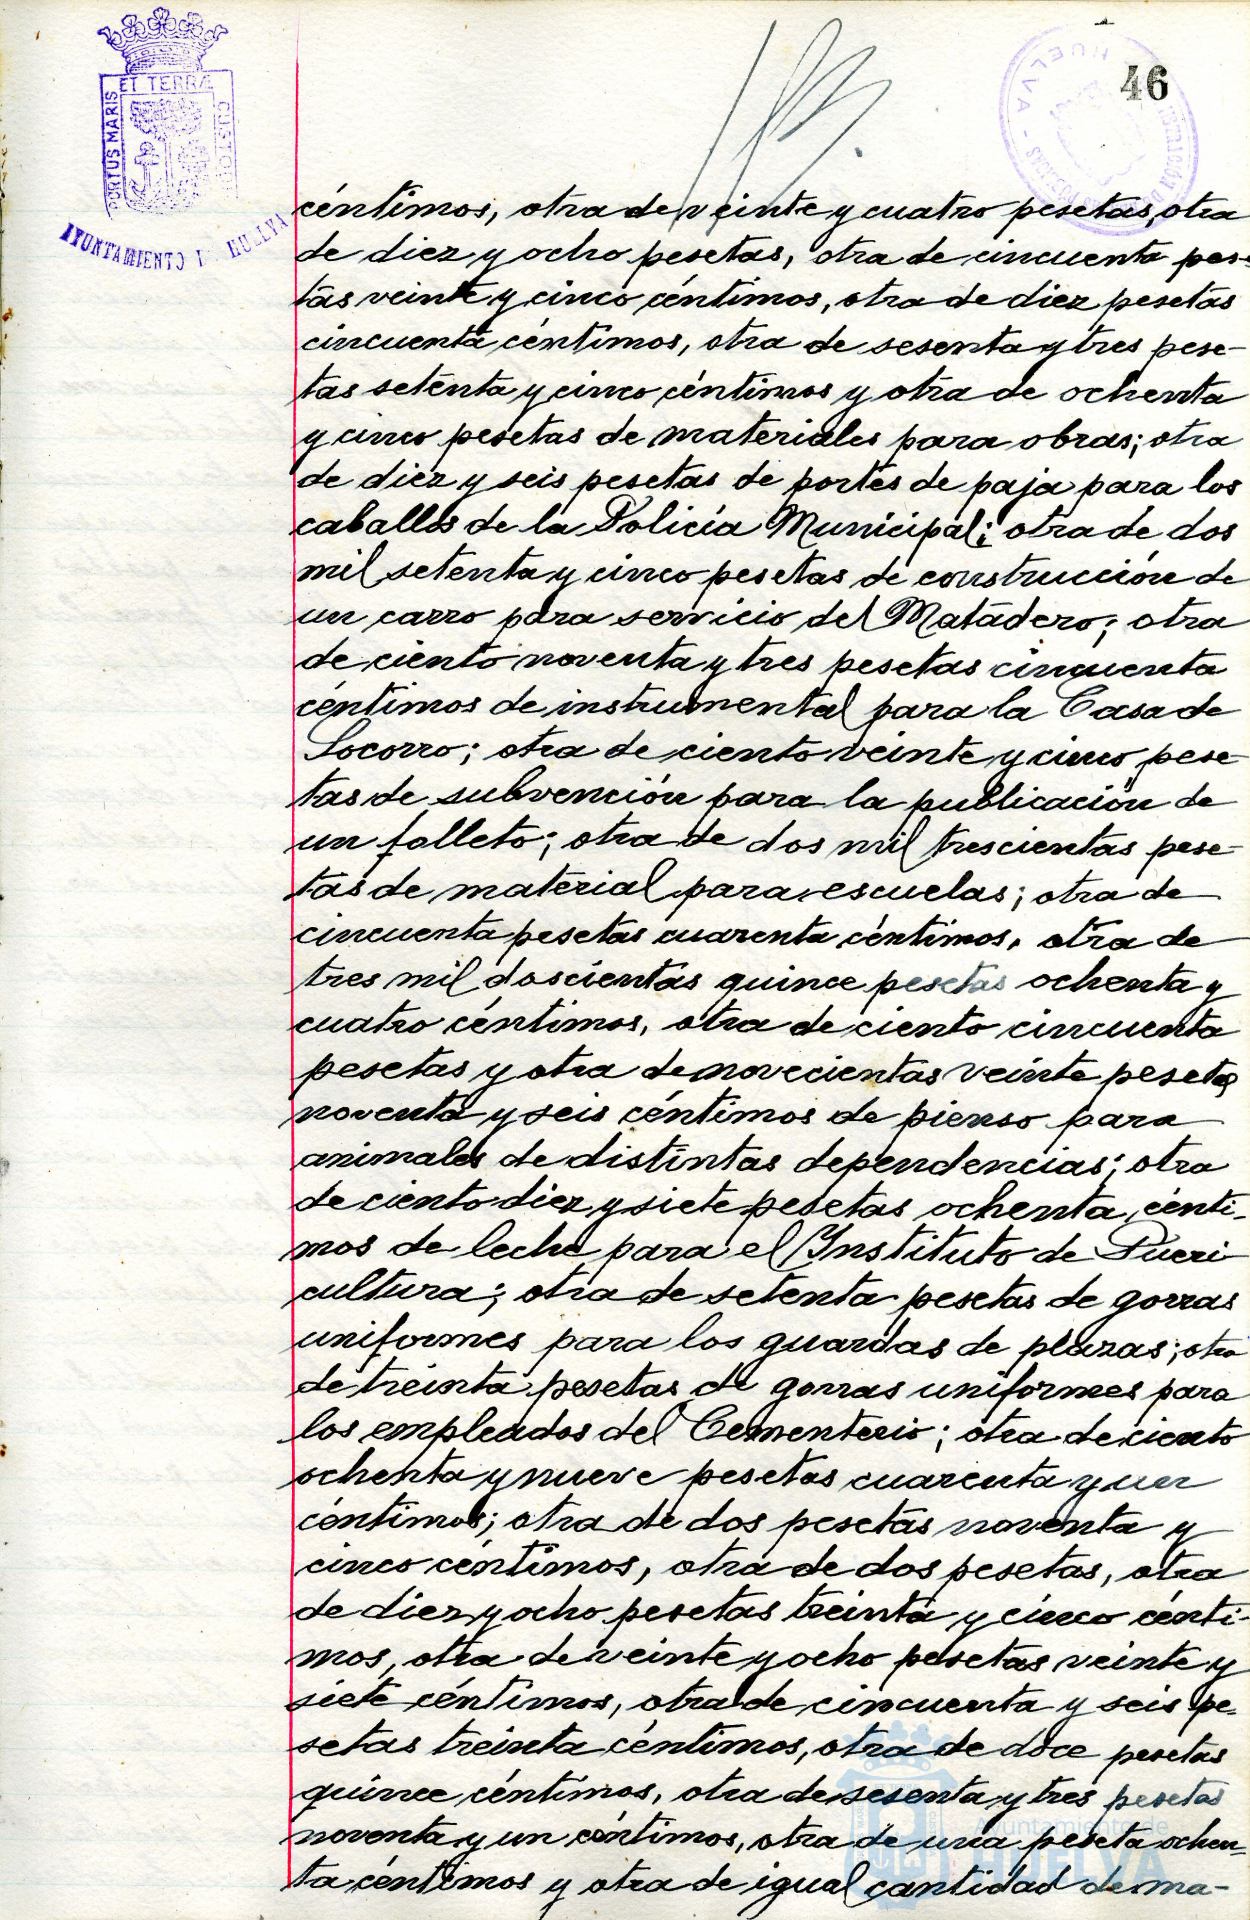 46
ET TERRÆ
PORTUS MARIS
CUSTODIA
AYUNTAMIENTO HUELVA
HUELVA
céntimos, otra de veinte y cuatro pesetas, otra
de diez y ocho pesetas, otra de cincuenta pese-
tas veinte y cinco céntimos, otra de diez pesetas
cincuenta céntimos, otra de sesenta y tres pese-
tas setenta y cinco céntimos y otra de ochenta
y cinco pesetas de materiales para obras; otra
de diez y seis pesetas de portes de paja para los
caballos de la Policía Municipal; otra de dos
mil setenta y cinco pesetas de construcción de
un carro para servicio del Matadero; otra
de ciento noventa y tres pesetas cincuenta
céntimos de instrumental para la Casa de
Socorro; otra de ciento veinte y cinco pese-
tas de subvención para la publicación de
un folleto; otra de dos mil trescientas pese-
tas de material para escuelas; otra de
cincuenta pesetas cuarenta céntimos, otra de
tres mil doscientas quince pesetas ochenta y
cuatro céntimos, otra de ciento cincuenta
pesetas y otra de novecientas veinte pesetas
noventa y seis céntimos de pienso para
animales de distintas dependencias; otra
de ciento diez y siete pesetas ochenta cénti-
mos de leche para el Instituto de Pueri
cultura; otra de setenta pesetas de gorras
uniformes para los guardas de plazas; otra
de treinta pesetas de gorras uniformes para
los empleados del Cementerio; otra de ciento
ochenta y nueve pesetas cuarenta y un
céntimos; otra de dos pesetas noventa y
cinco céntimos, otra de dos pesetas, otra
de diez y ocho pesetas treinta y cinco cénti-
mos, otra de veinte y ocho pesetas veinte y
siete céntimos, otra de cincuenta y seis pe-
setas treinta céntimos, otra de doce pesetas
quince céntimos, otra de sesenta y tres pesetas
noventa y un céntimos, otra de una peseta ochen-
ta céntimos y otra de igual cantidad de ma-
Ayuntamiento de
HUELVA